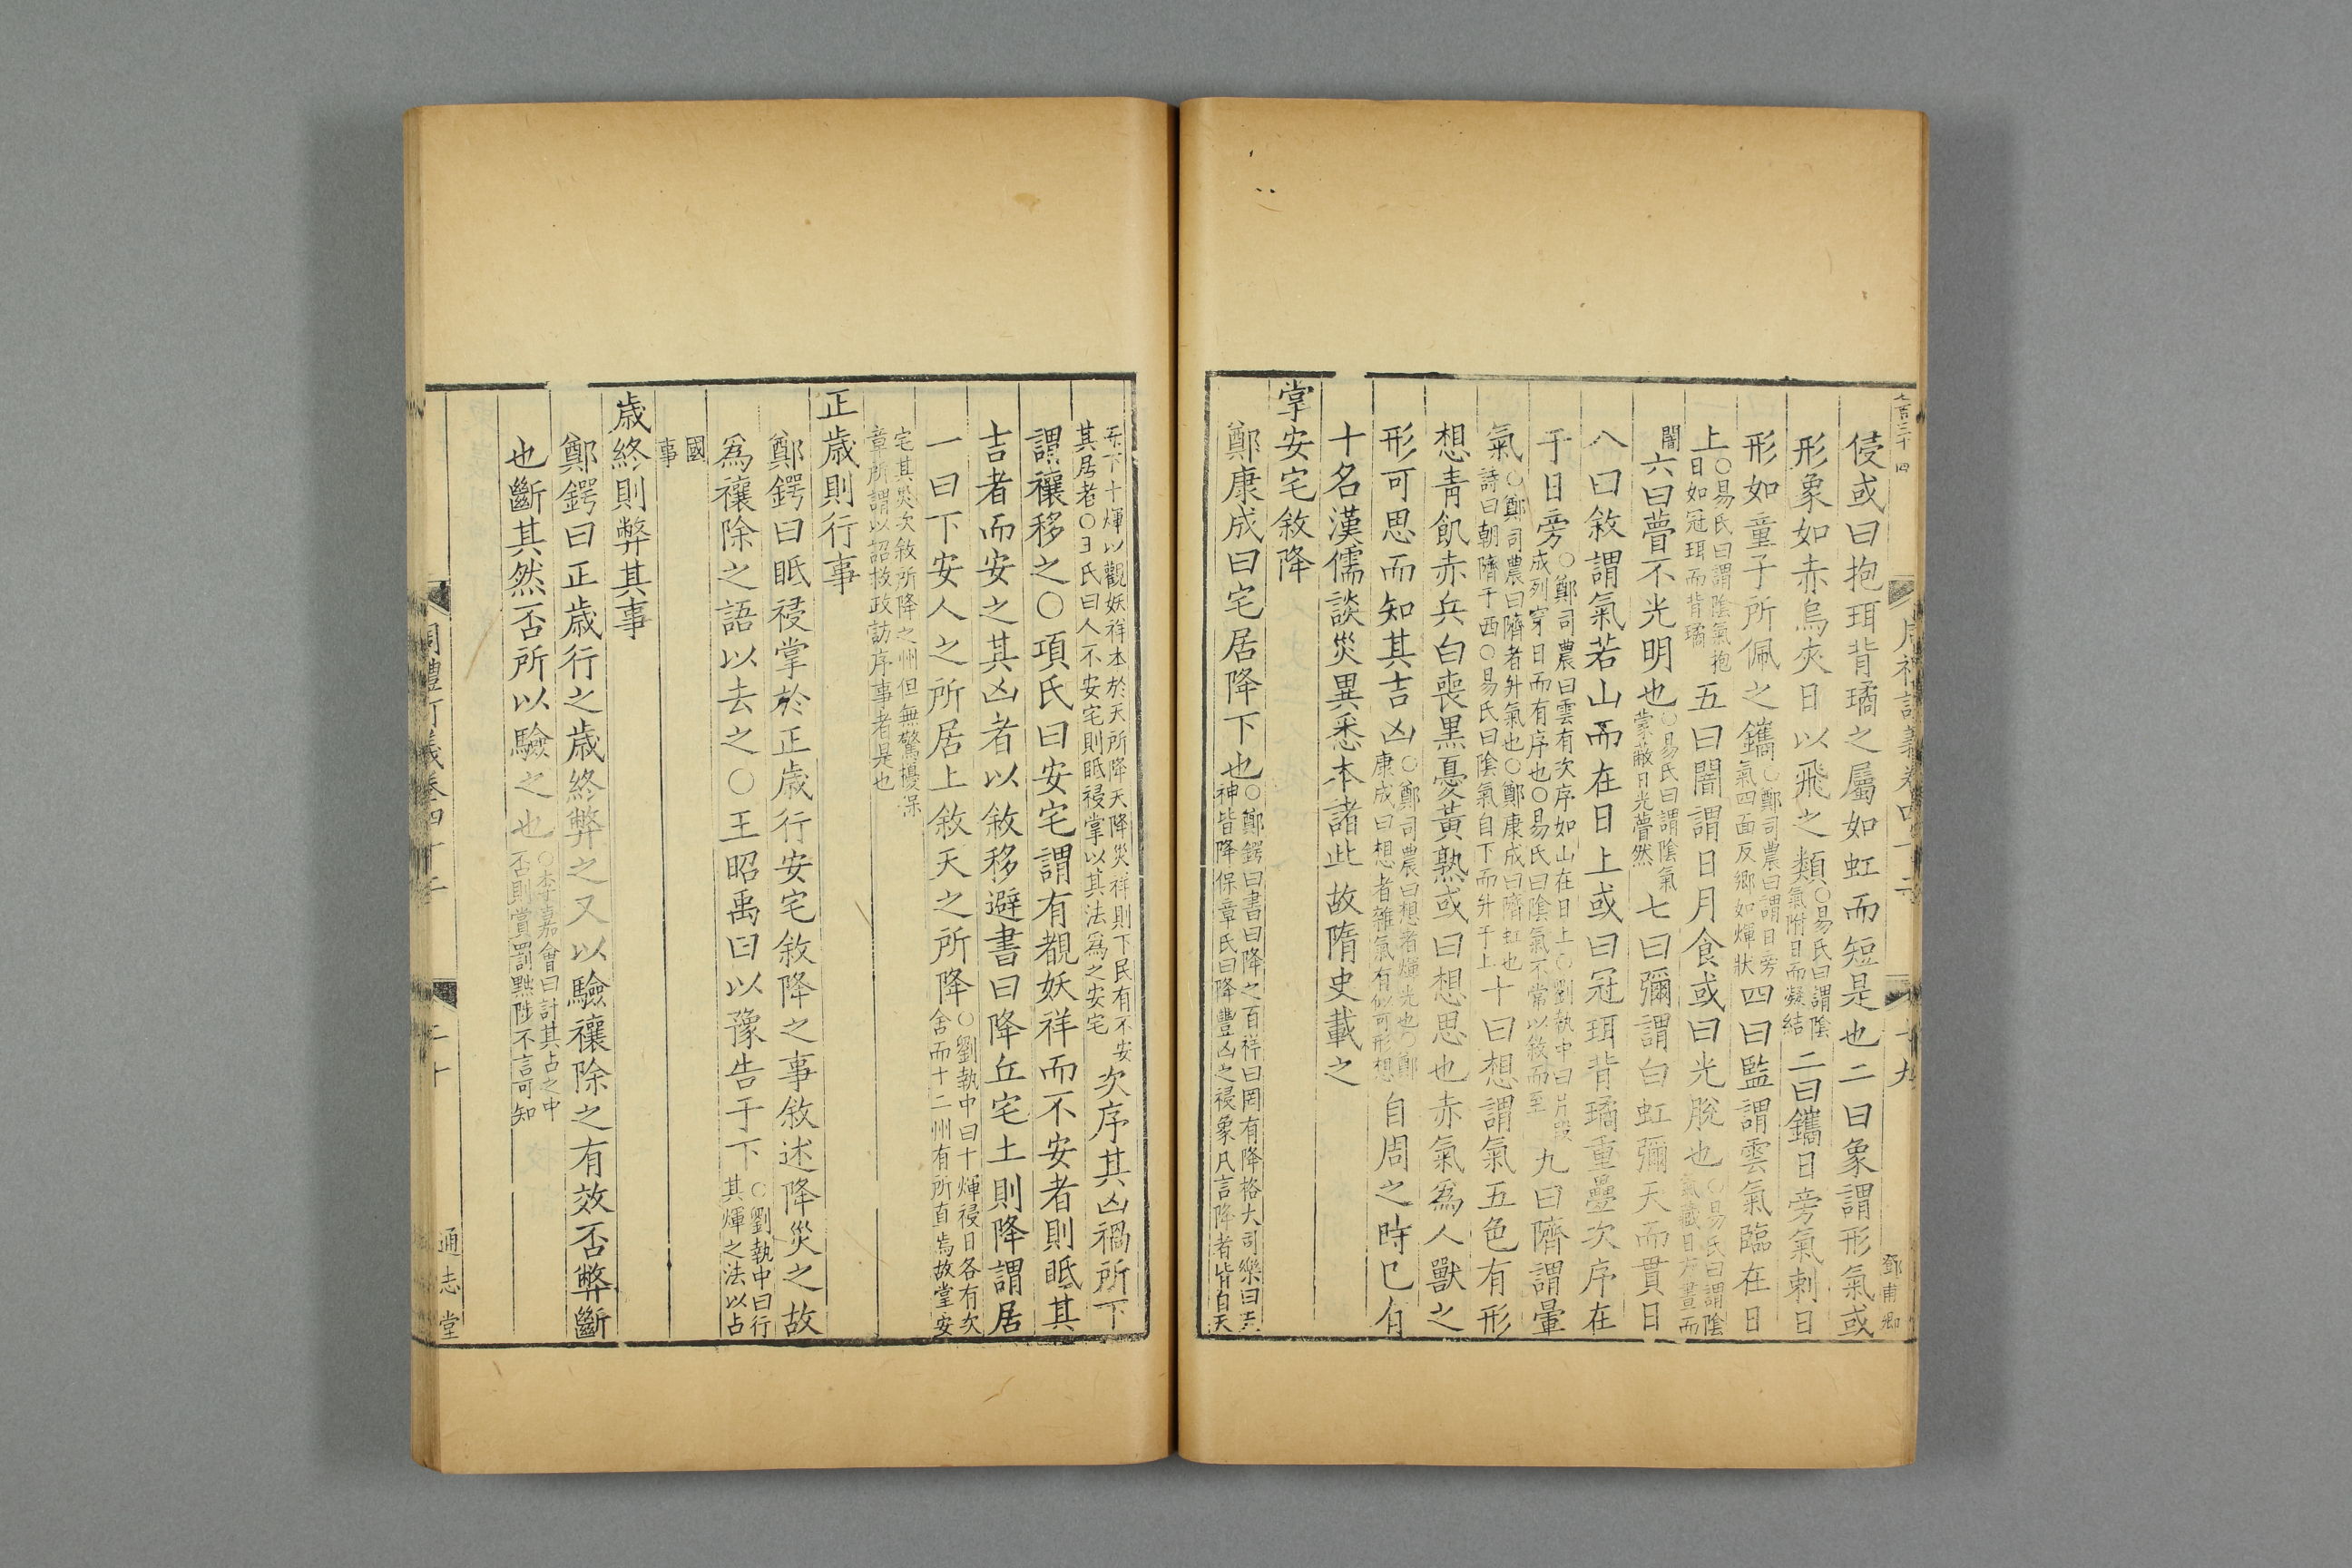 侵或曰抱珥背璚之屬如虹而短是也二曰象謂形氣或
形象如赤烏夾日以飛之類○易氏曰謂陰氣附日而凝結三曰鑴日旁氣刺日
形如童子所佩之鑴○鄭司農曰謂日旁氣四面反鄉如煇狀四曰監謂雲氣臨在日
上○易氏曰謂陰氣抱日如冠珥而背璚五曰闇謂日月食或曰光脫也○易氏曰謂陰氣藏日方晝而
闇六曰瞢不光明也○易氏曰謂陰氣蒙蔽日光瞢然七曰彌謂白虹彌天而貫日
八曰敘謂氣若山而在日上或曰冠珥背璚重疊次序在
于日旁○鄭司農曰雲有次序如山在日上○劉執中曰片段成列穿日而有序也○易氏曰陰氣不常以敘而至九曰隮謂暈
氣○鄭司農曰隮者升氣也○鄭康成曰隮虹也詩曰朝隮于西○易氏曰陰氣自下而升于上十曰想謂氣五色有形
想青飢赤兵白喪黑憂黃熟或曰想思也赤氣為人獸之
形可思而知其吉凶○鄭司農曰想者煇光也○鄭康成曰想者雜氣有似可形想自周之時已有
十名漢儒談災異悉本諸此故隋史載之
掌安宅敘降
鄭康成曰宅居降下也○鄭鍔曰書曰降之百祥曰罔有降格大司樂曰天神皆降保章氏曰降豐凶之祲象凡言降者皆自天
周禮訂義卷四十二
十九
鄧甫卿
而下十煇以觀妖祥本於天所降天降災祥則下民有不安其居者○王氏曰人不安宅則眡祲掌以其法為之安宅次序其凶禍所下
謂禳移之○項氏曰安宅謂有覩妖祥而不安者則眡其
吉者而安之其凶者以敘移避書曰降丘宅土則降謂居
一曰下安人之所居上敘天之所降○劉執中曰十煇祲日各有次舍而十二州有所直焉故掌安
宅其災次敘所降之州但無驚擾保章所謂以詔救政訪序事者是也
正歲則行事
鄭鍔曰眡祲掌於正歲行安宅敘降之事敘述降災之故
為禳除之語以去之○王昭禹曰以豫告于下○劉執中曰行其煇之法以占
國事
歲終則弊其事
鄭鍔曰正歲行之歲終弊之又以驗禳除之有效否弊斷
也斷其然否所以驗之也○李嘉會曰計其占之中否則賞罰黜陟不言可知
周禮訂義卷四十二
二十
通志堂